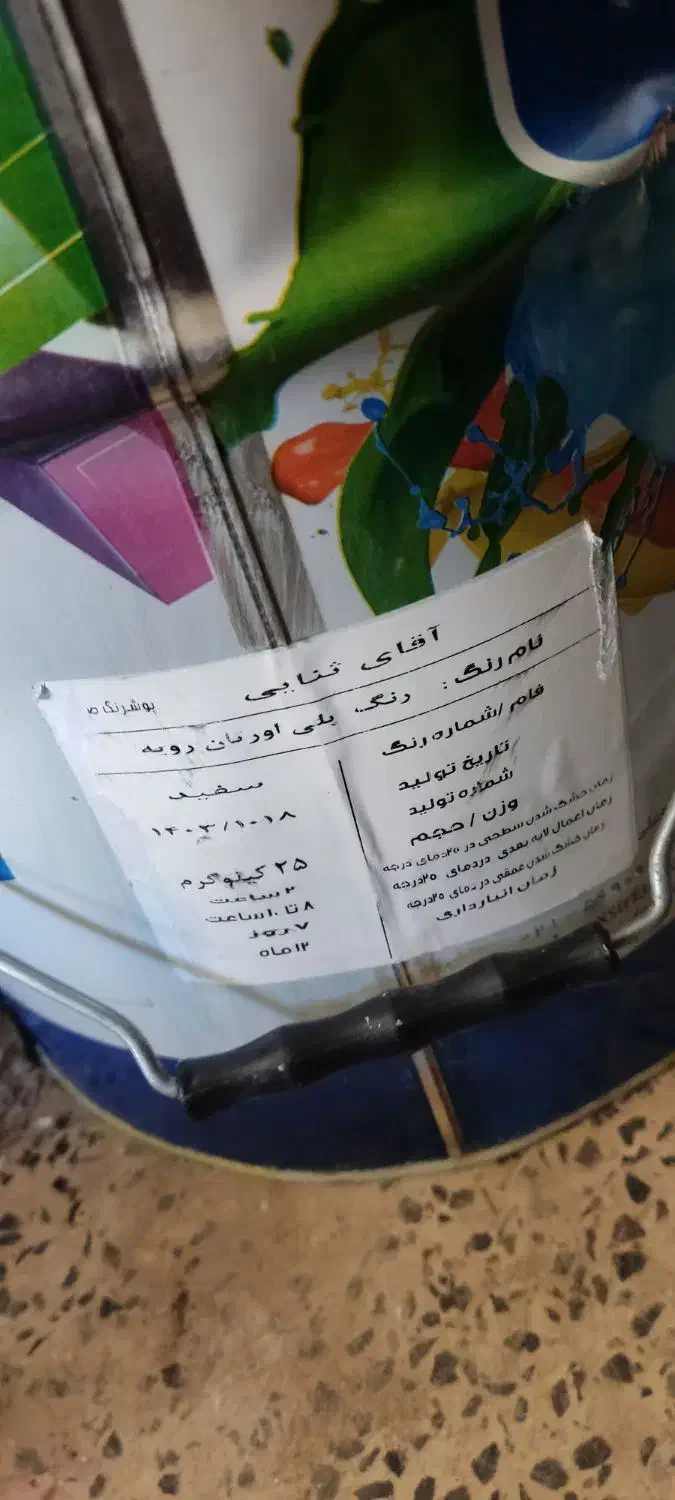 آقای ثنایی
پوشرنگ ص
نام رنگ : رنگ پلی اورتان رویه
فام /شماره رنگ سفید
تاریخ تولید ۱۴۰۳/۱۰۱۸
شماره تولید
وزن / حجم ۲۵ کیلوگرم
زمان خشک شدن سطحی در ۲۵دمای درجه ۲ساعت
زمان اعمال لایه بعدی دردمای ۲۵درجه ۸ تا ۱۰ساعت
زمان خشک شدن عمقی در دمای ۲۵درجه ۷روز
زمان انبارداری ۱۲ماه